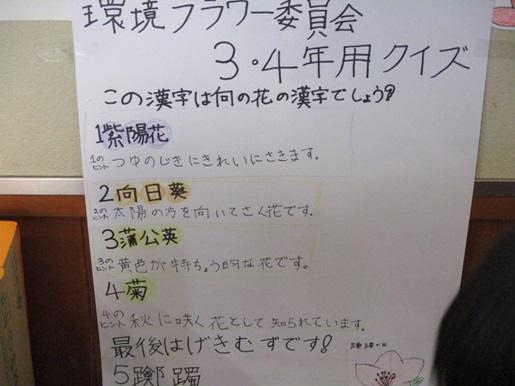 環境フラワー委員会
3・4年用クイズ
この漢字は何の花の漢字でしょう?
1紫陽花
1のヒント つゆのじきにきれいにさきます。
2向日葵
2のヒント 太陽の方を向いてさく花です。
3蒲公英
3のヒント 黄色が特ちょう的な花です。
4菊
4のヒント 秋に咲く花として知られています。
最後はげきむずです!
5躑躅